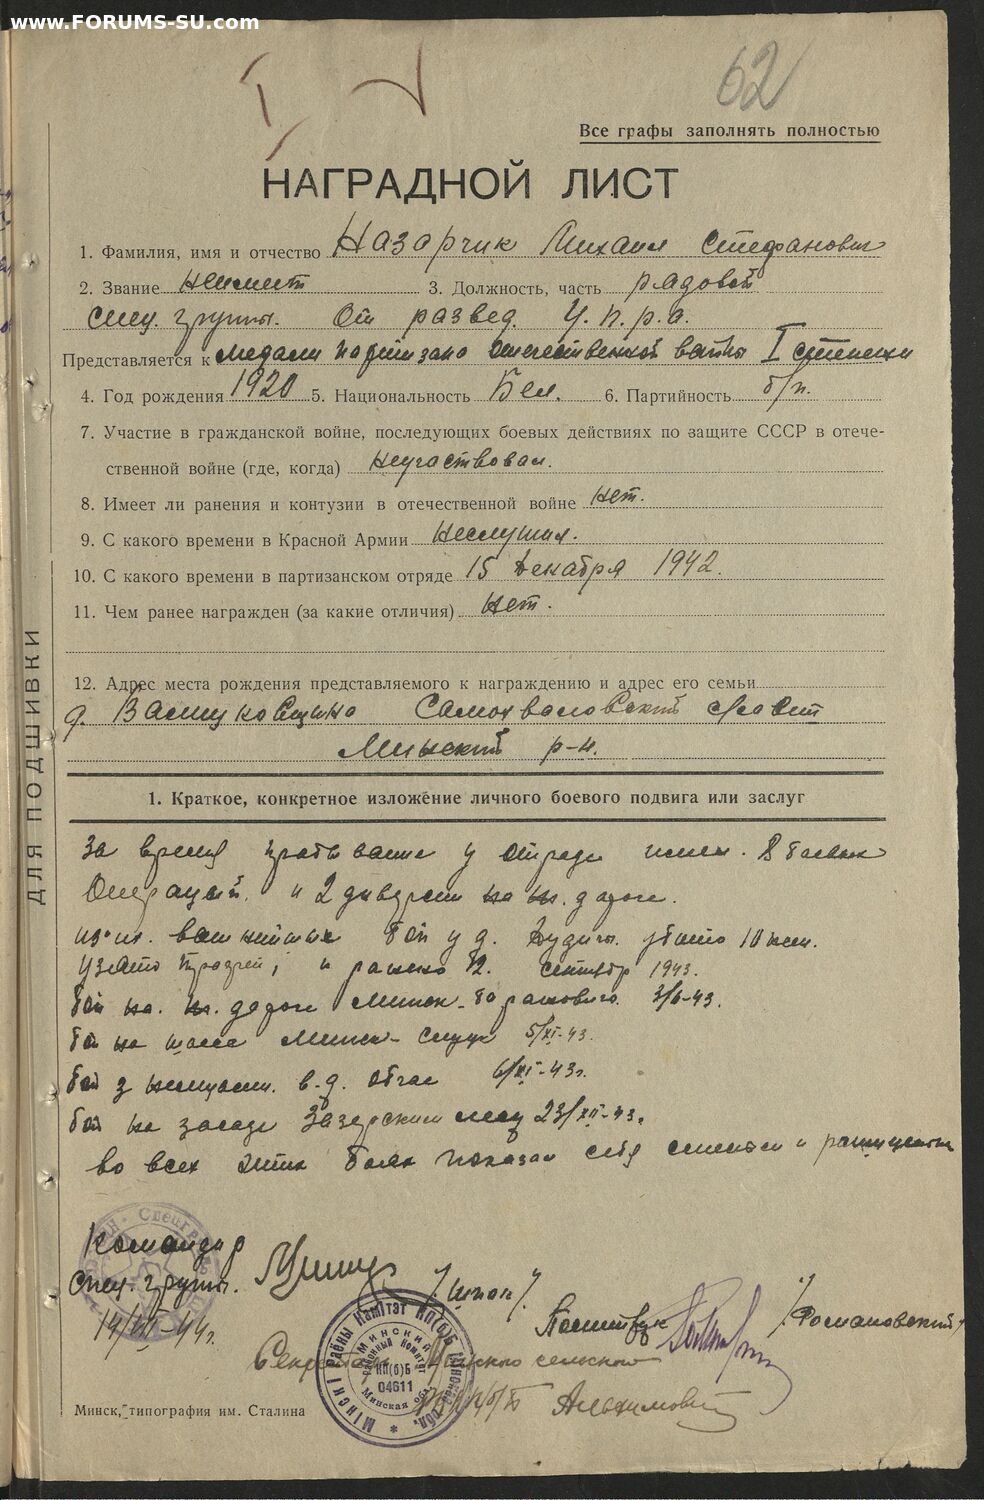 www.FORUMS-SU.com
62
Все графы заполнять полностью
НАГРАДНОЙ ЛИСТ
1. Фамилия, имя и отчество Назарчик Михаил Стефанович
2. Звание неимеет 3. Должность, часть рядовой
спец. групы. От развед.
Представляется к медали партизано отечественной вайны I степени
4. Год рождения 1920 5. Национальность Бел. 6. Партийность б/п.
7. Участие в гражданской войне, последующих боевых действиях по защите СССР в отече-
ственной войне (где, когда) неучаствовал.
8. Имеет ли ранения и контузии в отечественной войне нет.
9. С какого времени в Красной Армии неслужил.
10. С какого времени в партизанском отряде 15 Декабря 1942.
11. Чем ранее награжден (за какие отличия) нет.
12. Адрес места рождения представляемого к награждению и адрес его семьи
д. Самохваловский с/совит
Минский р-н.
1. Краткое, конкретное изложение личного боевого подвига или заслуг
За время у отряди 8 баевых
Операцый. и 2 диверсии на ж. дороге.
бой у д. убито 10 нем.
узято и ранено 12. сентябр 1943.
бой на. ж. дороге Минск-Барановичи 3/6-43.
бой на шасса Минск-Слуцк 5/XI-43.
бой з немцами. в. д. 6/XI-43г.
бой на засаде 23/XII-43.
во всех этих боях показал себя смелым и
ДЛЯ ПОДШИВКИ
Командир
Спец. групы.
14/VIII-44г.
/Романовский/
Секретарь Минского сельского
РК КП/б/Б Альхимович
Мінскі раённы Камітэт КП(б)Б Мінскай обл.
Минский районный Комитет КП(б)Б 04611 Минская обл.
Минск, типография им. Сталина